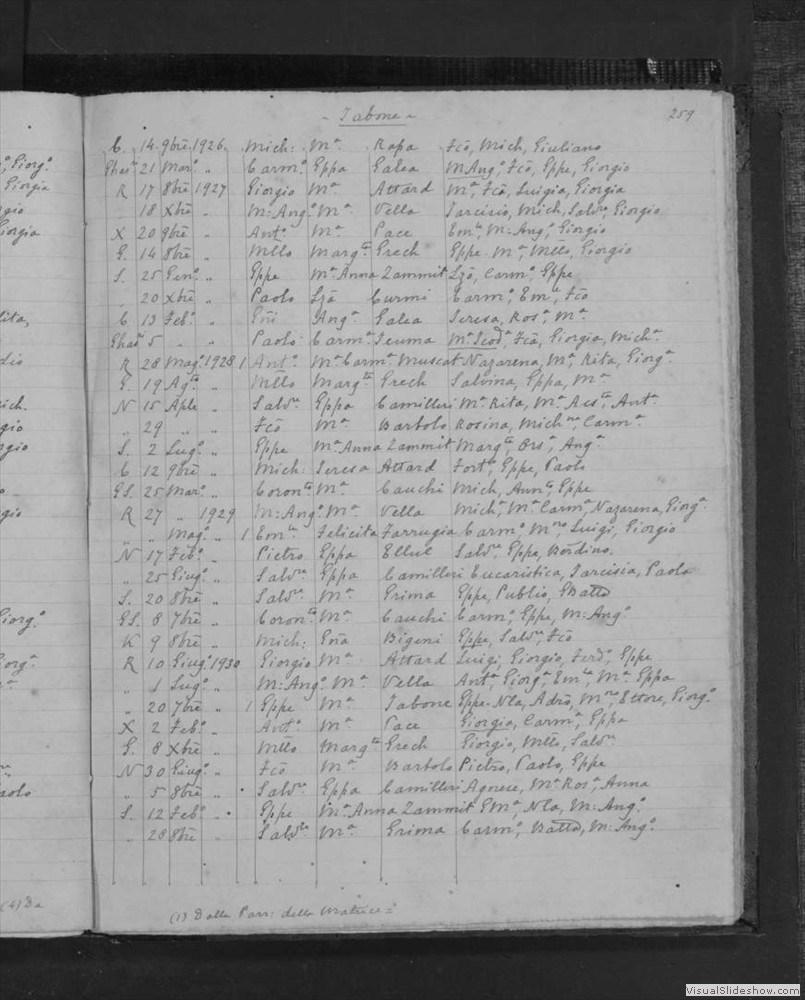 - Tabone - 259
C. 14 9bre 1926 Mich: Mª Rapa Fcõ, Mich, Giuliano
Ghasⁿ 21 Marº „ Carmº Eppa Galea M Angº, Fcõ, Eppe, Giorgio
R 17 8bre 1927 Giorgio Mª Attard Mª, Fcõ, Luigia, Giorgia
„ 18 Xbre „ M: Angº Mª Vella Tarcisio, Mich, Salvʳᵉ, Giorgio
X 20 9bre „ Antº Mª Pace Emˡᵉ, M: Angº, Giorgio
G. 14 8bre „ Mtteo Margᵗᵃ Grech Eppe Mª, Mtteo, Giorgio
S. 25 Genº „ Eppe Mª Anna Zammit Lzõ, Carmº, Eppe
„ 20 Xbre „ Paolo Lzã Curmi Carmº, Emˡᵉ, Fcõ
C 13 Febº „ Gñi Angª Galea Teresa, Rosª, Mª
Ghasⁿ 5 „ „ Paolo Carmª Seuma Mª Teodª, Fcã, Giorgia, Michª
R 28 Magº 1928 1 Antº Mª Carmª Muscat Nazarena, Mª, Rita, Giorgª
G. 19 Agᵗᵒ „ Mtteo Margᵗᵃ Grech Salvina, Eppa, Mª
N 15 Aple „ Salvʳᵉ Eppa Camilleri Mª Rita, Mª Asᵗᵃ, Antª
„ 29 „ „ Fcõ Mª Bartolo Rosina, Michⁿᵃ, Carmª
S. 2 Lugº „ Eppe Mª Anna Zammit Margᵗᵃ, Orsª, Angª
C 12 9bre „ Mich: Teresa Attard Fortᵗᵒ, Eppe, Paolo
GS. 25 Marº „ Coronᵗᵒ Mª Cauchi Mich, Annᵗᵒ, Eppe
R 27 „ 1929 M: Angº Mª Vella Michª, Mª Carmª, Nazarena, Giorgª
„ „ Magº „ 1 Emˡᵉ Felicita Farrugia Carmº, Mⁿᵒ, Luigi, Giorgio
N 17 Febº „ Pietro Eppa Ellul Salvʳᵉ, Eppe,
„ 25 Giugº „ Salvʳᵉ Eppa Camilleri Eucaristica, Tarcisia, Paola
S. 20 8bre „ Salvʳᵉ Mª Grima Eppe, Publio, Gbatta
GS. 8 7bre „ Coronᵗᵒ Mª Cauchi Carmº, Eppe, M: Angº
K 9 8bre „ Mich: Gña Bigeni Eppe, Salvʳᵉ, Fcõ
R 10 Giugº 1930 Giorgio Mª Attard Luigi, Giorgio, Ferdº, Eppe
„ 1 Lugº „ M: Angº Mª Vella Antª, Giorgª, Emˡᵃ, Mª Eppa
„ 20 7bre „ 1 Eppe Mª Tabone Eppe Nla, Adrõ, Mⁿᵒ, Ettore, Giorgº
X 2 Febº „ Antº Mª Pace Giorgia, Carmª, Eppa
G. 8 Xbre „ Mtteo Margᵗᵃ Grech Giorgio, Mtteo, Salvʳᵉ
N 30 Giugº „ Fcõ Mª Bartolo Pietro, Paolo, Eppe
„ 5 8bre „ Salvʳᵉ Eppa Camilleri Agnese, Mª Rosª, Anna
S. 12 Febº „ Eppe Mª Anna Zammit Nla, M: Angº
„ 28 8bre „ Salvʳᵉ Mª Grima Carmº, Batta, M: Angº
(1) Dalla Parr: della Matrice =
VisualSlideshow.com